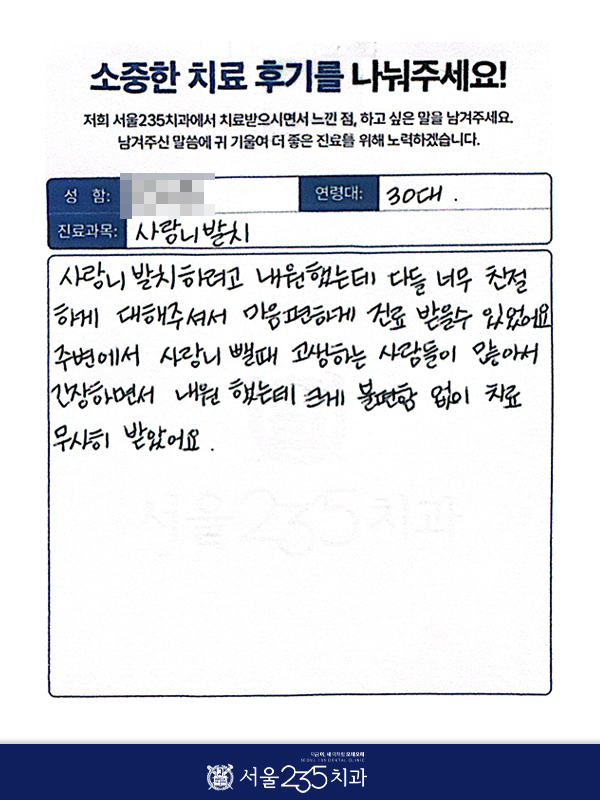 소중한 치료 후기를 나눠주세요!
저희 서울235치과에서 치료받으시면서 느낀 점, 하고 싶은 말을 남겨주세요.
남겨주신 말씀에 귀 기울여 더 좋은 진료를 위해 노력하겠습니다.
성 함: 연령대: 30대.
진료과목: 사랑니발치
사랑니 발치하려고 내원했는데 다들 너무 친절
하게 대해주셔서 마음편하게 진료 받을수 있었어요
주변에서 사랑니 뺄때 고생하는 사람들이 많아서
긴장하면서 내원 했는데 크게 불편함 없이 치료
무사히 받았어요.
서울235치과
SEOUL 235 DENTAL CLINIC
서울235치과